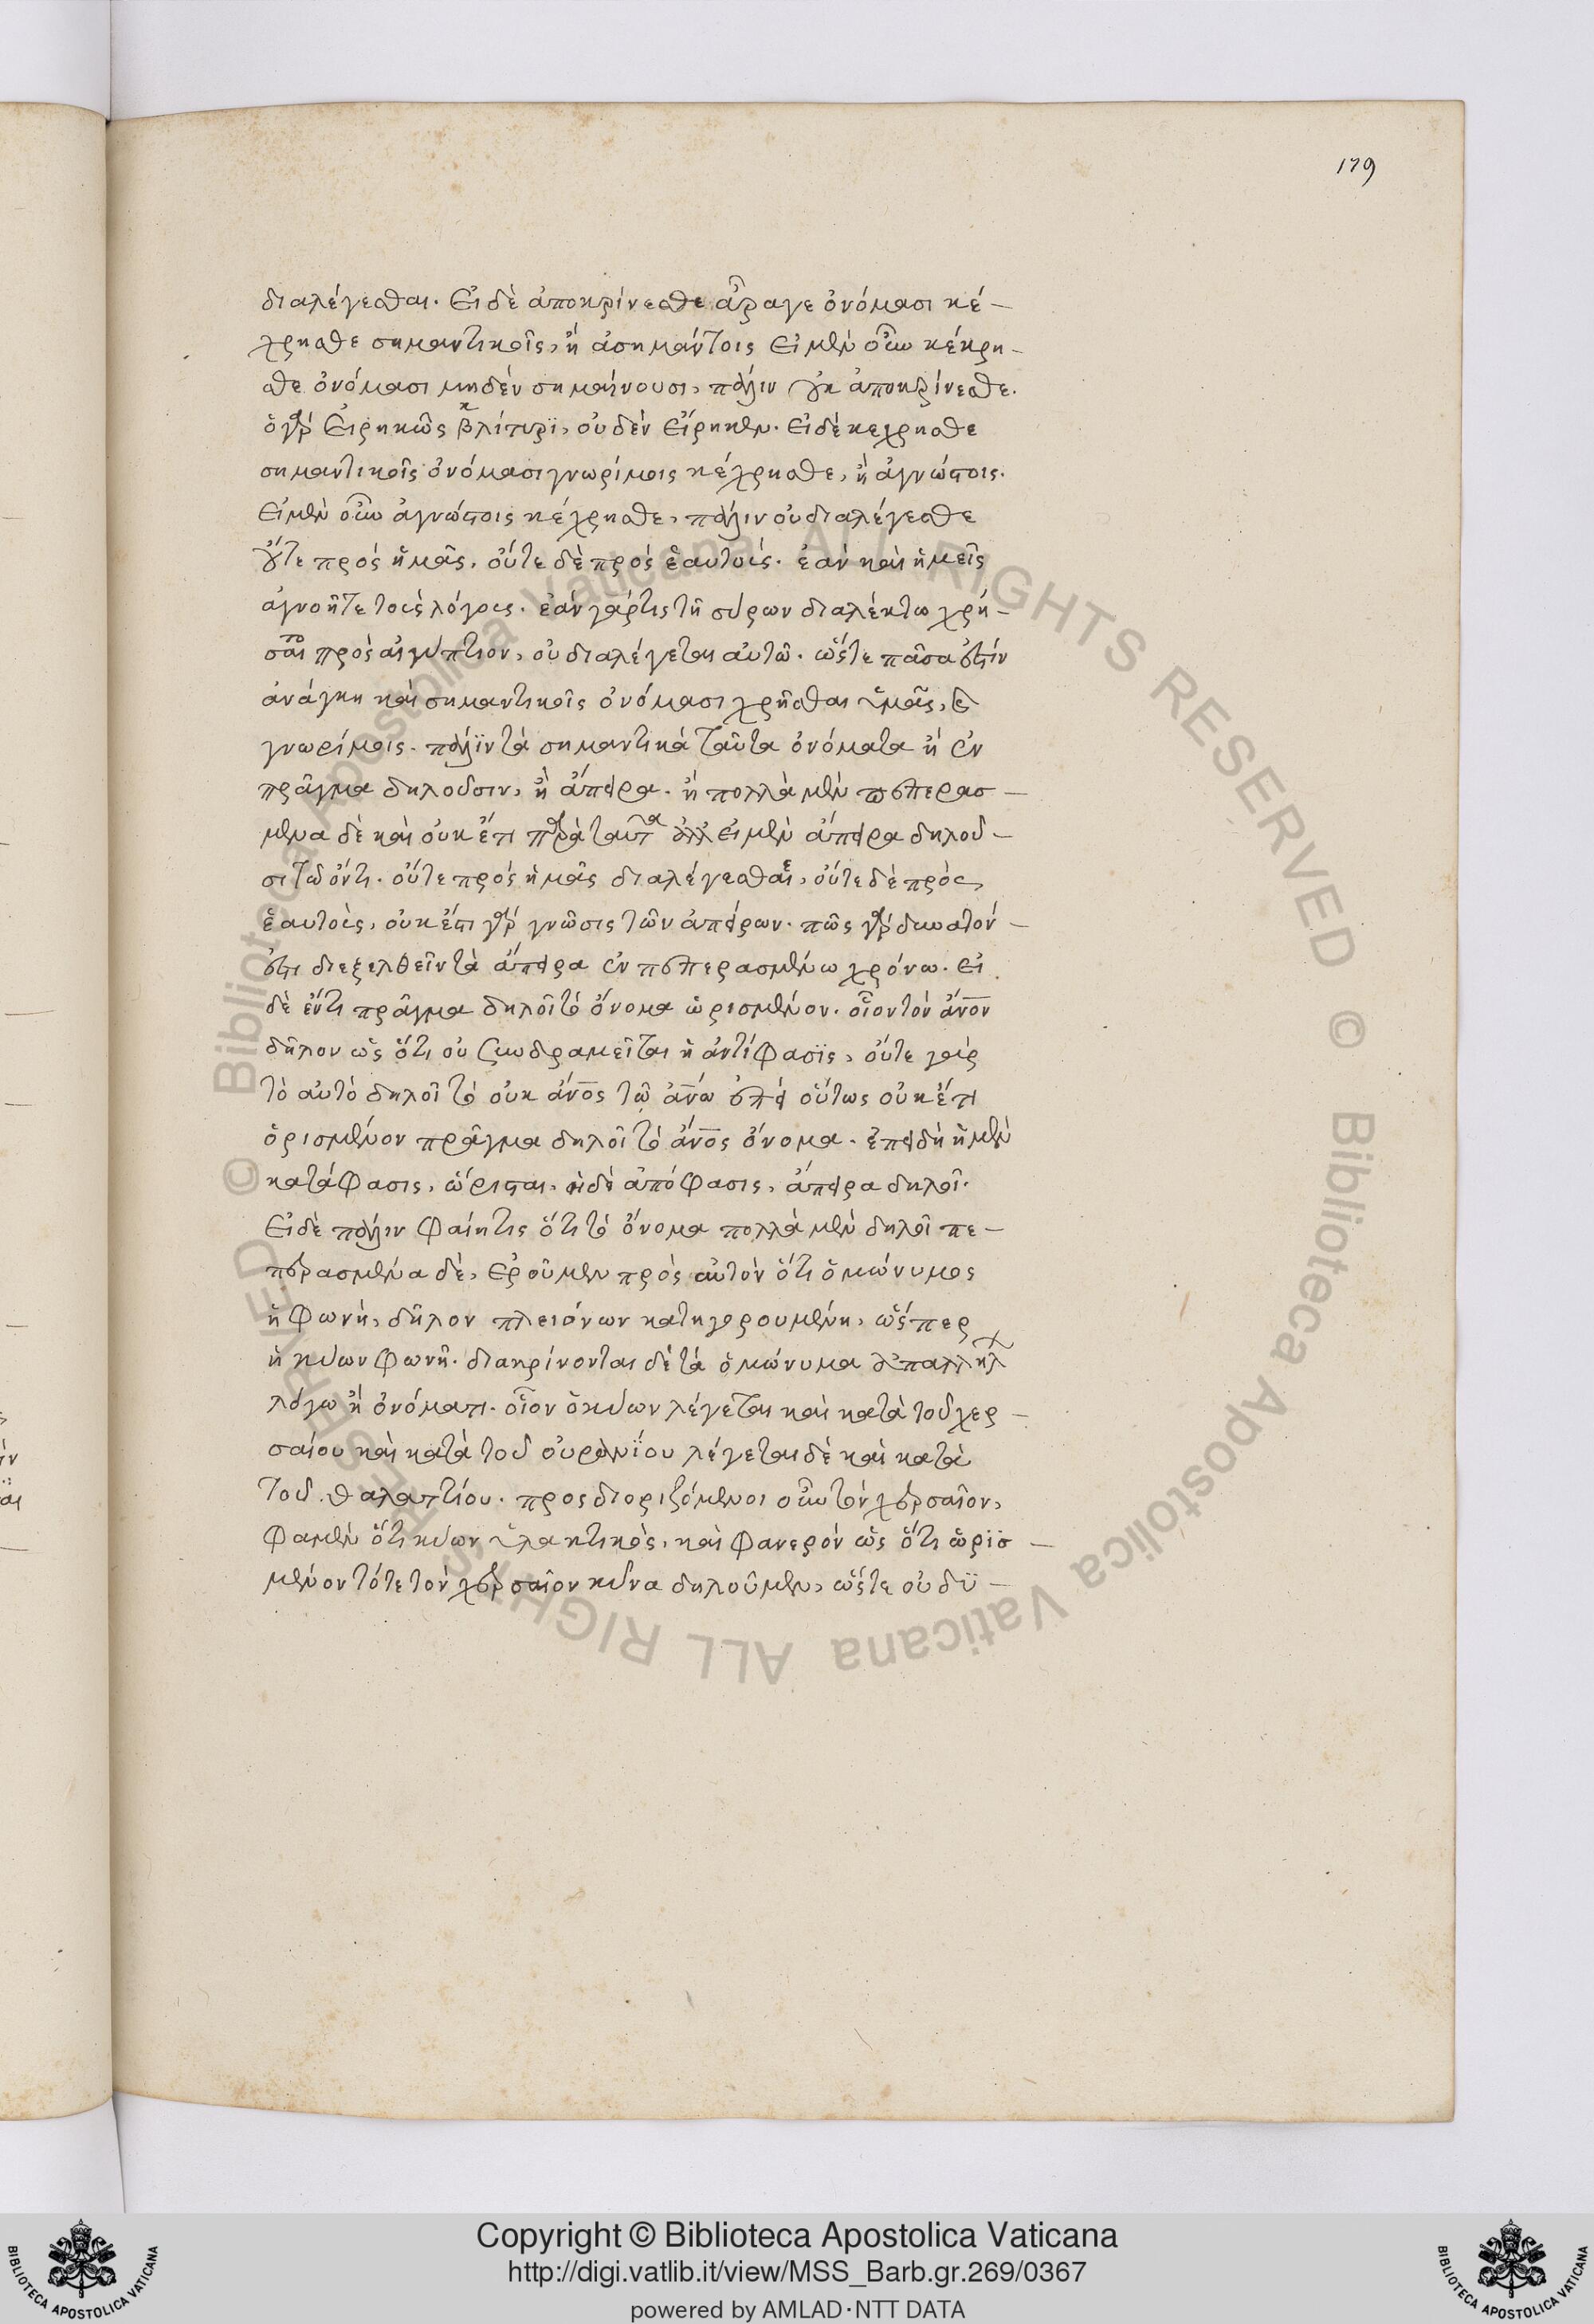 179
διαλέγεσθαι. Εἰ δὲ ἀποκρίνεσθε ἆραγε ὀνόμασι κέ-
χρησθε σημαντικοῖς, ἢ ἀσημάντοις εἰ μὲν οὖν κέκρη-
σθε ὀνόμασι μηδὲν σημαίνουσι, πάλιν οὐκ ἀποκρίνεσθε.
ὁ γὰρ εἰρηκὼς βλίτυρϊ, οὐδὲν εἴρηκεν. εἰ δὲ κεχρησθε
σημαντικοῖς ὀνόμασι γνωρίμοις κέχρησθε, ἢ ἀγνώστοις.
Εἰ μὲν οὖν ἀγνώστοις κέχρησθε, πάλιν οὐ διαλέγεσθε
οὔτε πρὸς ἡμᾶς, οὔτε δὲ πρὸς ἑαυτούς. ἐὰν καὶ ἡμεῖς
ἀγνοῆτε τοὺς λόγους. ἐὰν γάρ τις τῇ σύρων διαλέκτω χρή-
σαιτο πρὸς αἰγύπτιον, οὐ διαλέγεται αὐτῶ. ὥστε πᾶσα ἐστὶν
ἀνάγκη καὶ σημαντικοῖς ὀνόμασι χρῆσθαι ὑμᾶς, καὶ
γνωρίμοις. πάλϊν τὰ σημαντικὰ ταῦτα ὀνόματα ἢ ἓν
πρᾶγμα δηλοῦσιν, ἢ ἄπειρα. ἢ πολλὰ μὲν πεπερασ-
μένα δὲ καὶ οὐκ ἔτι παρὰ ταῦτα ἀλλ εἰ μὲν ἄπειρα δηλοῦ-
σι τῶ ὄντι. οὔτε πρὸς ἡμᾶς διαλέγεσθαι, οὔτε δὲ πρὸς
ἑαυτοὺς, οὐκ ἔστι γὰρ γνῶσις τῶν ἀπείρων. πῶς γὰρ δυνατόν
ἐστι διεξελθεῖν τὰ ἄπειρα ἐν πεπερασμένω χρόνω. εἰ
δὲ ἕν τι πρᾶγμα δηλοῖ τὸ ὄνομα ὡρισμένον. οἷον τὸν ἄνον
δῆλον ὡς ὅτι οὐ συνδραμεῖται ἡ ἀντίφασϊς, οὔτε γὰρ
τὸ αὐτὸ δηλοῖ τὸ οὐκ ἄνος τῶ ἄνω ἐπεὶ οὕτως οὐκ ἔτι
ὁρισμένον πρᾶγμα δηλοῖ τὸ ἄνος ὄνομα. ἐπειδὴ ἡ μὲν
κατάφασις, ὥρισται, ἡ δὲ ἀπόφασις, ἄπειρα δηλοῖ.
Εἰ δὲ πάλιν φαίη τις ὅτι τὸ ὄνομα πολλὰ μὲν δηλοῖ πε-
περασμένα δὲ, ἐροῦμεν πρὸς αὐτὸν ὅτι ὁμώνυμος
ἡ φωνὴ, δῆλον πλειόνων κατηγορουμένη, ὥσπερ
ἡ κύων φωνῆ. διακρίνονται δὲ τὰ ὁμώνυμα
λόγω ἢ ὀνόματι. οἷον ὁ κύων λέγεται καὶ κατὰ τοῦ χερ-
σαίου καὶ κατὰ τοῦ οὐρανΐου λέγεται δὲ καὶ κατὰ
τοῦ θαλαττίου. προς διοριζόμενοι οὖν τὸν χερσαῖον,
φαμὲν ὅτι κύων ὑλακτικὸς, καὶ φανερὸν ὡς ὅτι ὡρϊσ-
μένον τότε τὸν χερσαῖον κύνα δηλοῦμεν, ὥστε οὐ δϋ-
© Biblioteca Apostolica Vaticana ALL RIGHTS RESERVED © Biblioteca Apostolica Vaticana ALL RIGHTS RESERVED
Copyright © Biblioteca Apostolica Vaticana
http://digi.vatlib.it/view/MSS_Barb.gr.269/0367
powered by AMLAD·NTT DATA
BIBLIOTECA APOSTOLICA VATICANA
BIBLIOTECA APOSTOLICA VATICANA